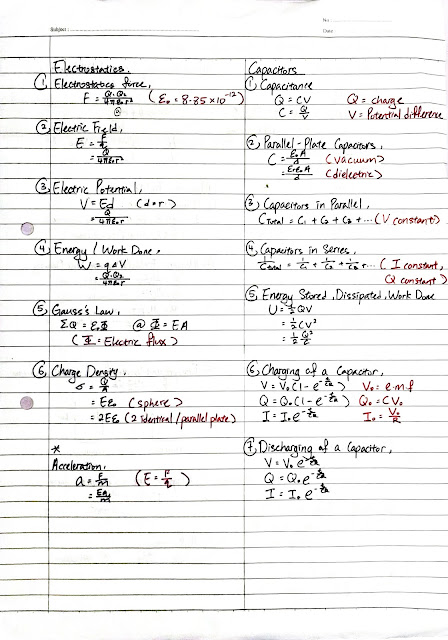 No.
Subject :
Date
Electrostatics.
① Electrostatics force,
F = Q₁Q₂/4πε₀r² (ε₀ = 8.85 × 10⁻¹²)
② Electric Field,
E = F/q
= Q/4πε₀r²
③ Electric Potential,
V = Ed (d=r)
= Q/4πε₀r
④ Energy / Work Done,
W = qΔV
= Q₁Q₂/4πε₀r
⑤ Gauss's Law,
ΣQ = ε₀Φ @ Φ = EA
(Φ = Electric flux)
⑥ Charge Density,
σ = Q/A
= Eε₀ (sphere)
= 2Eε₀ (2 identical/parallel plate)
*
Acceleration,
a = F/m (E = F/q)
= Eq/m
Capacitors
① Capacitance
Q = CV Q = charge
C = Q/V V = Potential difference
② Parallel-Plate Capacitors,
C = ε₀A/d (vacuum)
= εrε₀A/d (dielectric)
③ Capacitors in Parallel,
CTotal = C₁ + C₂ + C₃ ... (V constant)
④ Capacitors in Series,
1/Ctotal = 1/C₁ + 1/C₂ + 1/C₃ ... (I constant,
Q constant)
⑤ Energy Stored, Dissipated, Work Done
U = ½QV
= ½CV²
= ½ Q²/C
⑥ Charging of a Capacitor,
V = V₀(1 - e^-t/CR) V₀ = e.m.f
Q = Q₀(1 - e^-t/CR) Q₀ = CV₀
I = I₀e^-t/CR I₀ = V₀/R
⑦ Discharging of a Capacitor,
V = V₀e^-t/CR
Q = Q₀e^-t/CR
I = I₀e^-t/CR